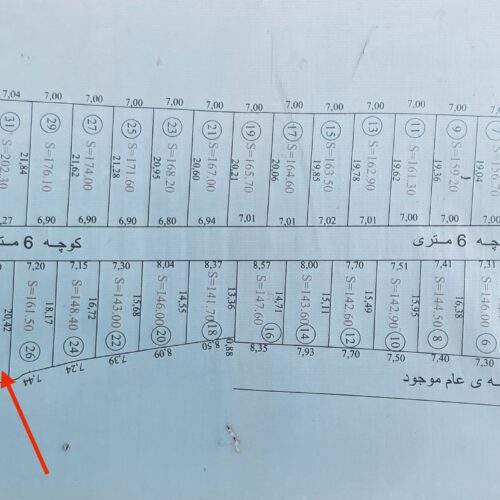 7,04 7,00 7,00 7,00 7,00 7,00 7,00 7,00 7,00 7,00 7,00 7,00
31 29 27 25 23 21 19 17 15 13 11 9
S=202.30 S=176.10 S=174.00 S=171.60 S=168.20 S=167.00 S=165.70 S=164.60 S=163.50 S=162.90 S=161.30 S=159.20
21,84 21,62 21,28 20,95 20,60 20,21 20,06 19,85 19,78 19,62 19,36 19,04
6,90 6,90 6,90 6,80 6,94 7,01 7,01 7,02 7,01 7,00 7,00
کوچه 6
6 متری
7,20 7,15 7,30 8,04 8,37 8,57 8,00 7,70 7,51 7,41 7,31
20,42 18,17 16,72 15,68 14,55 13,36 14,71 15,11 15,49 15,95 16,38
S=161.50 S=148.40 S=143.00 S=146.00 S=141.70 S=147.60 S=143.60 S=142.60 S=142.90 S=144.50 S=146.00
26 24 22 20 18 16 14 12 10 8 6
7,44 7,24 7,39 8,09 8,50 0,88 8,35 7,93 7,70 7,50 7,40 7,30
ه ی عام موجود